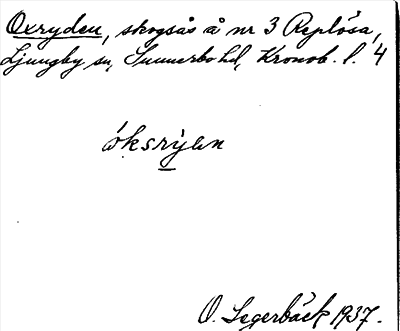 Oxryden, skogsås å nr 3 Replösa,
Ljungby sn, Sunnerbo hd, Kronob. l. 4
óksrỳen
O. Segerbäck 1937.